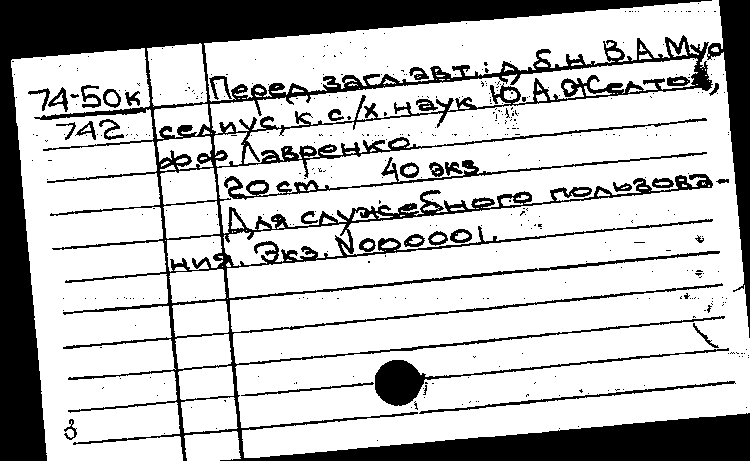 74-50к
742
Перед загл. авт.: д.б.н. В.А. Мур-
селиус, к.с./х. наук Ю.А. Желтов,
Ф.Ф. Лавренко.
20 ст. 40 экз.
Для служебного пользова-
ния. Экз. N000001.